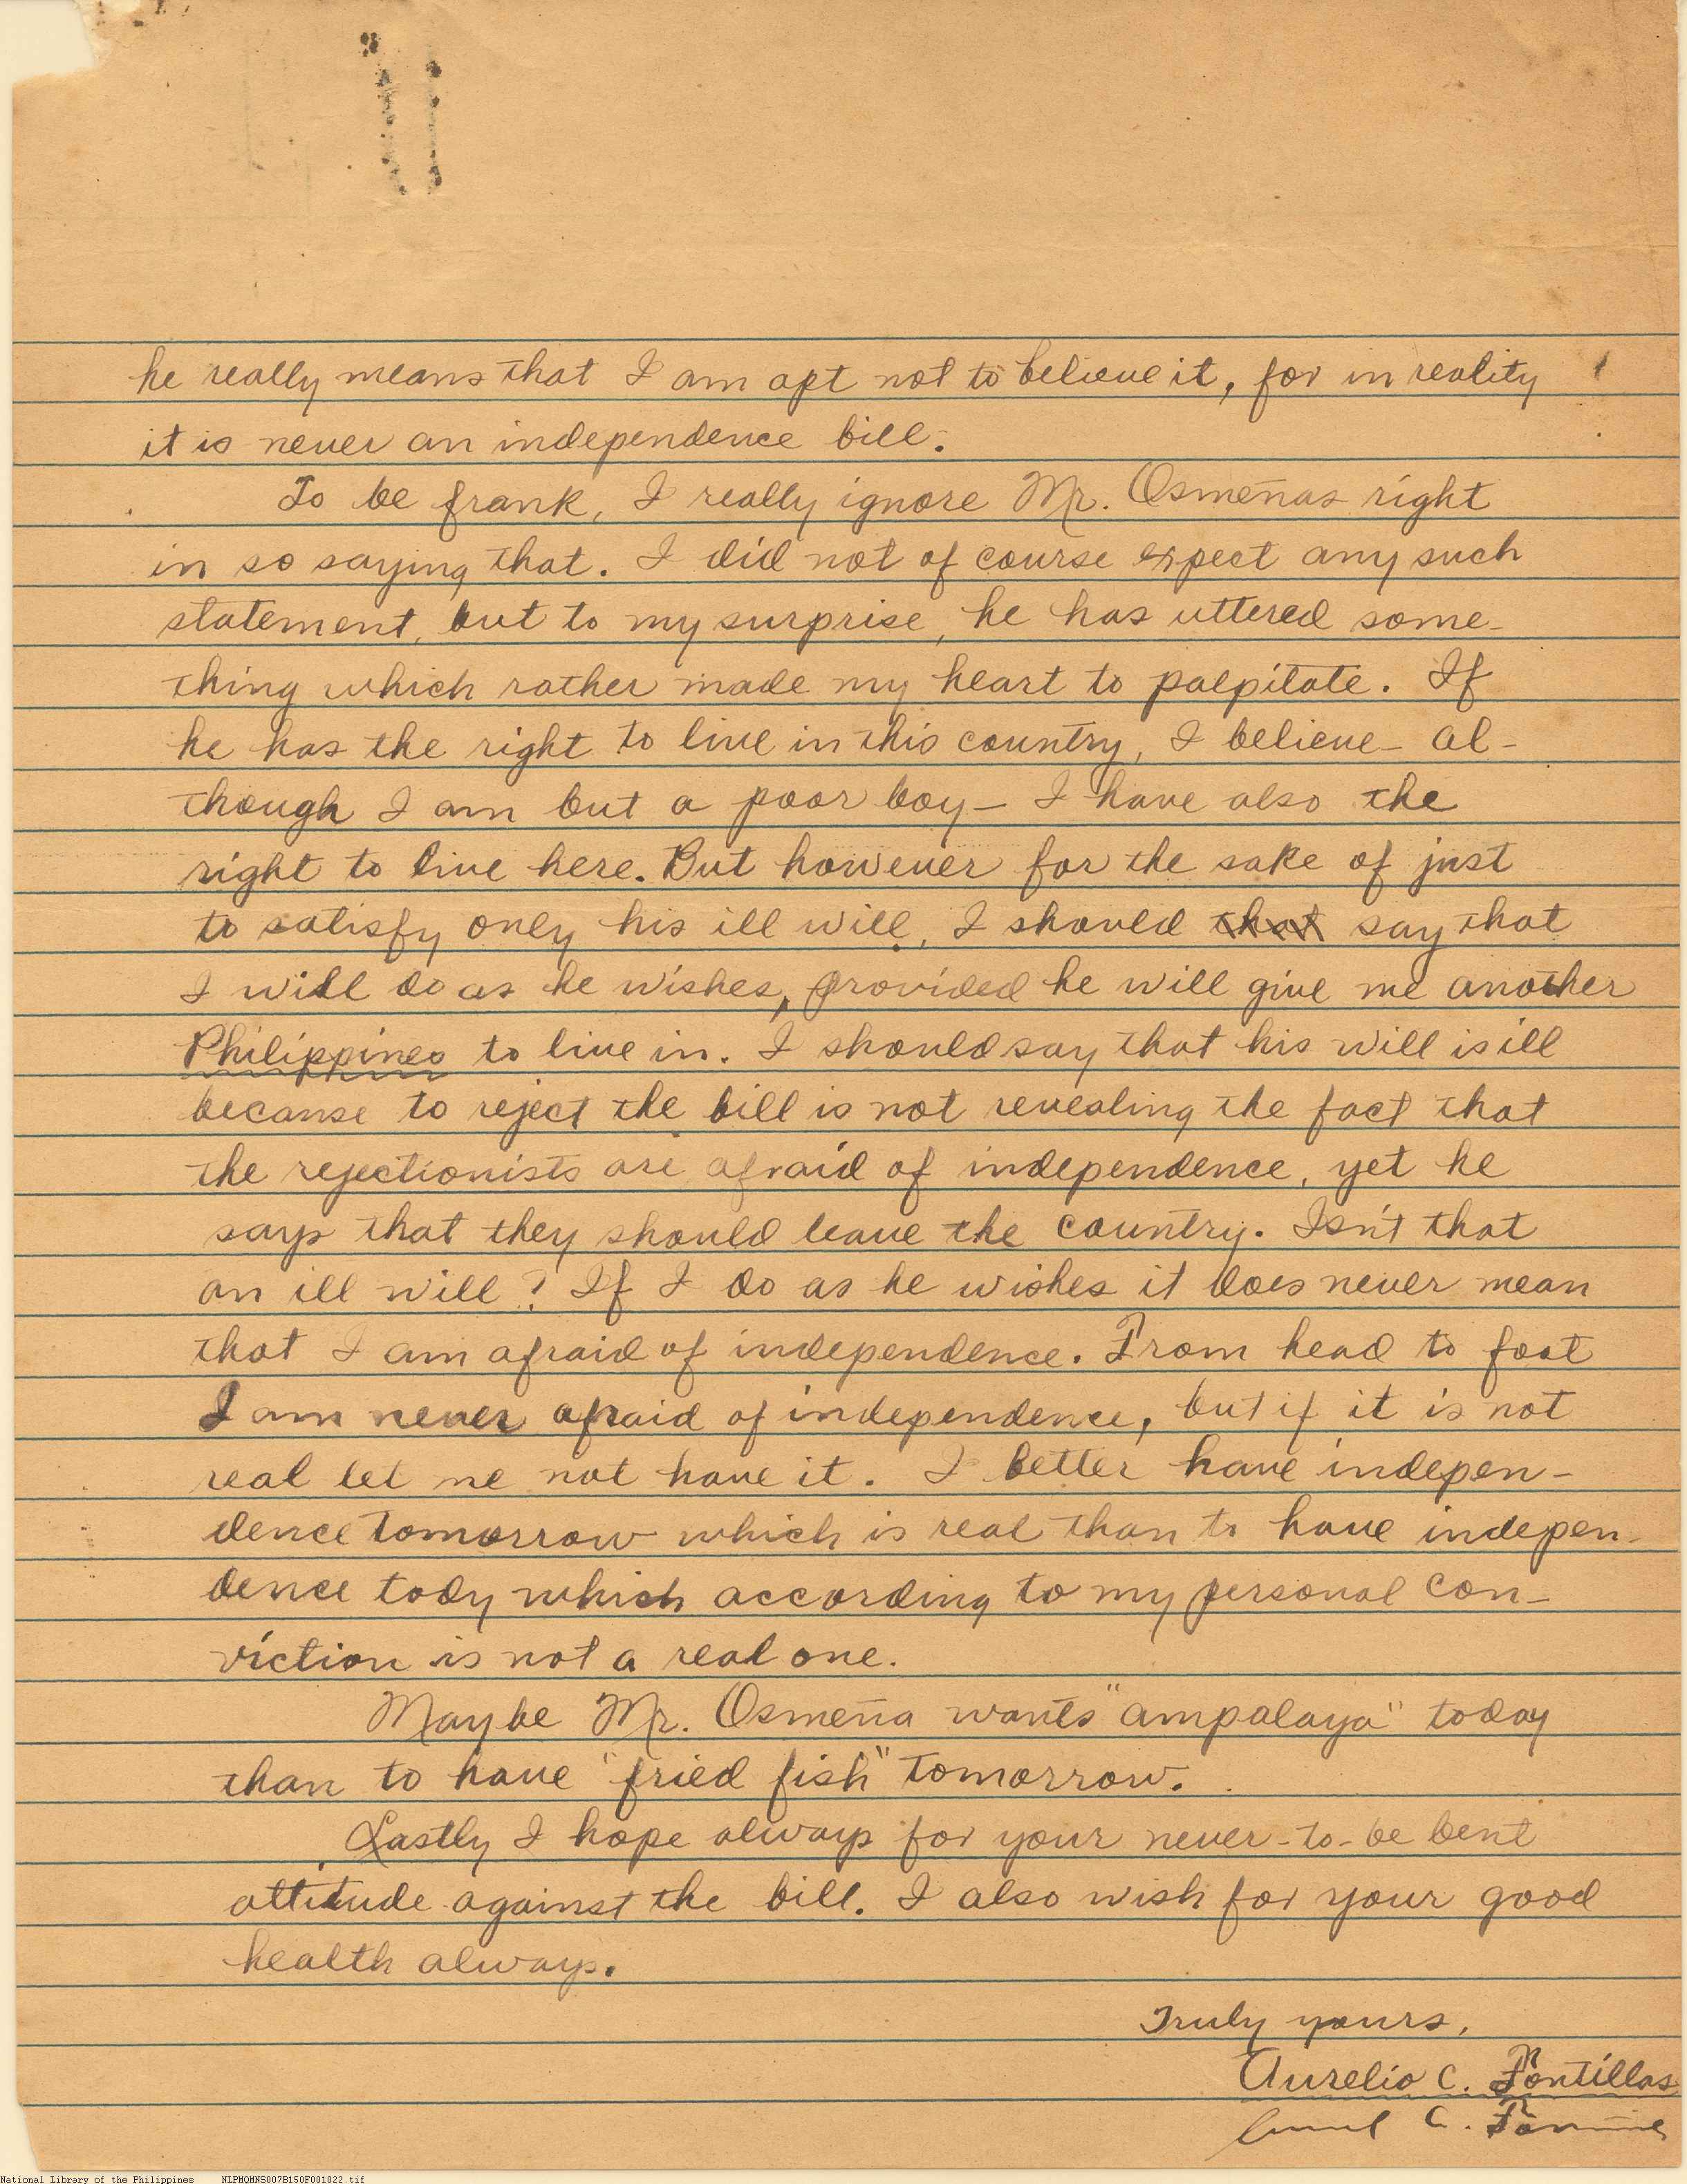 he really means that I am apt not to believe it, for in reality
it is never an independence bill.
To be frank, I really ignore Mr. Osmeñas right
in so saying that. I did not of course expect any such
statement, but to my surprise, he has uttered some-
thing which rather made my heart to palpitate. If
he has the right to live in this country, I believe - al-
though I am but a poor boy - I have also the
right to live here. But however for the sake of just
to satisfy only his ill will, I should that say that
I will do as he wishes, provided he will give me another
Philippines to live in. I should say that his will is ill
because to reject the bill is not revealing the fact that
the rejectionists are afraid of independence, yet he
says that they should leave the country. Isn't that
an ill will? If I do as he wishes it does never mean
that I am afraid of independence. From head to foot
I am never afraid of independence, but if it is not
real let me not have it. I better have indepen-
dence tomorrow which is real than to have indepen-
dence tody which according to my personal con-
viction is not a real one.
Maybe Mr. Osmeña wants "ampalaya" today
than to have "fried fish" tomorrow.
Lastly I hope always for your never-to-be bent
attitude against the bill. I also wish for your good
health always.
Truly yours,
Aurelio C. Fontillas
C.
National Library of the Philippines NLPMQMNS007B150F001022.tif